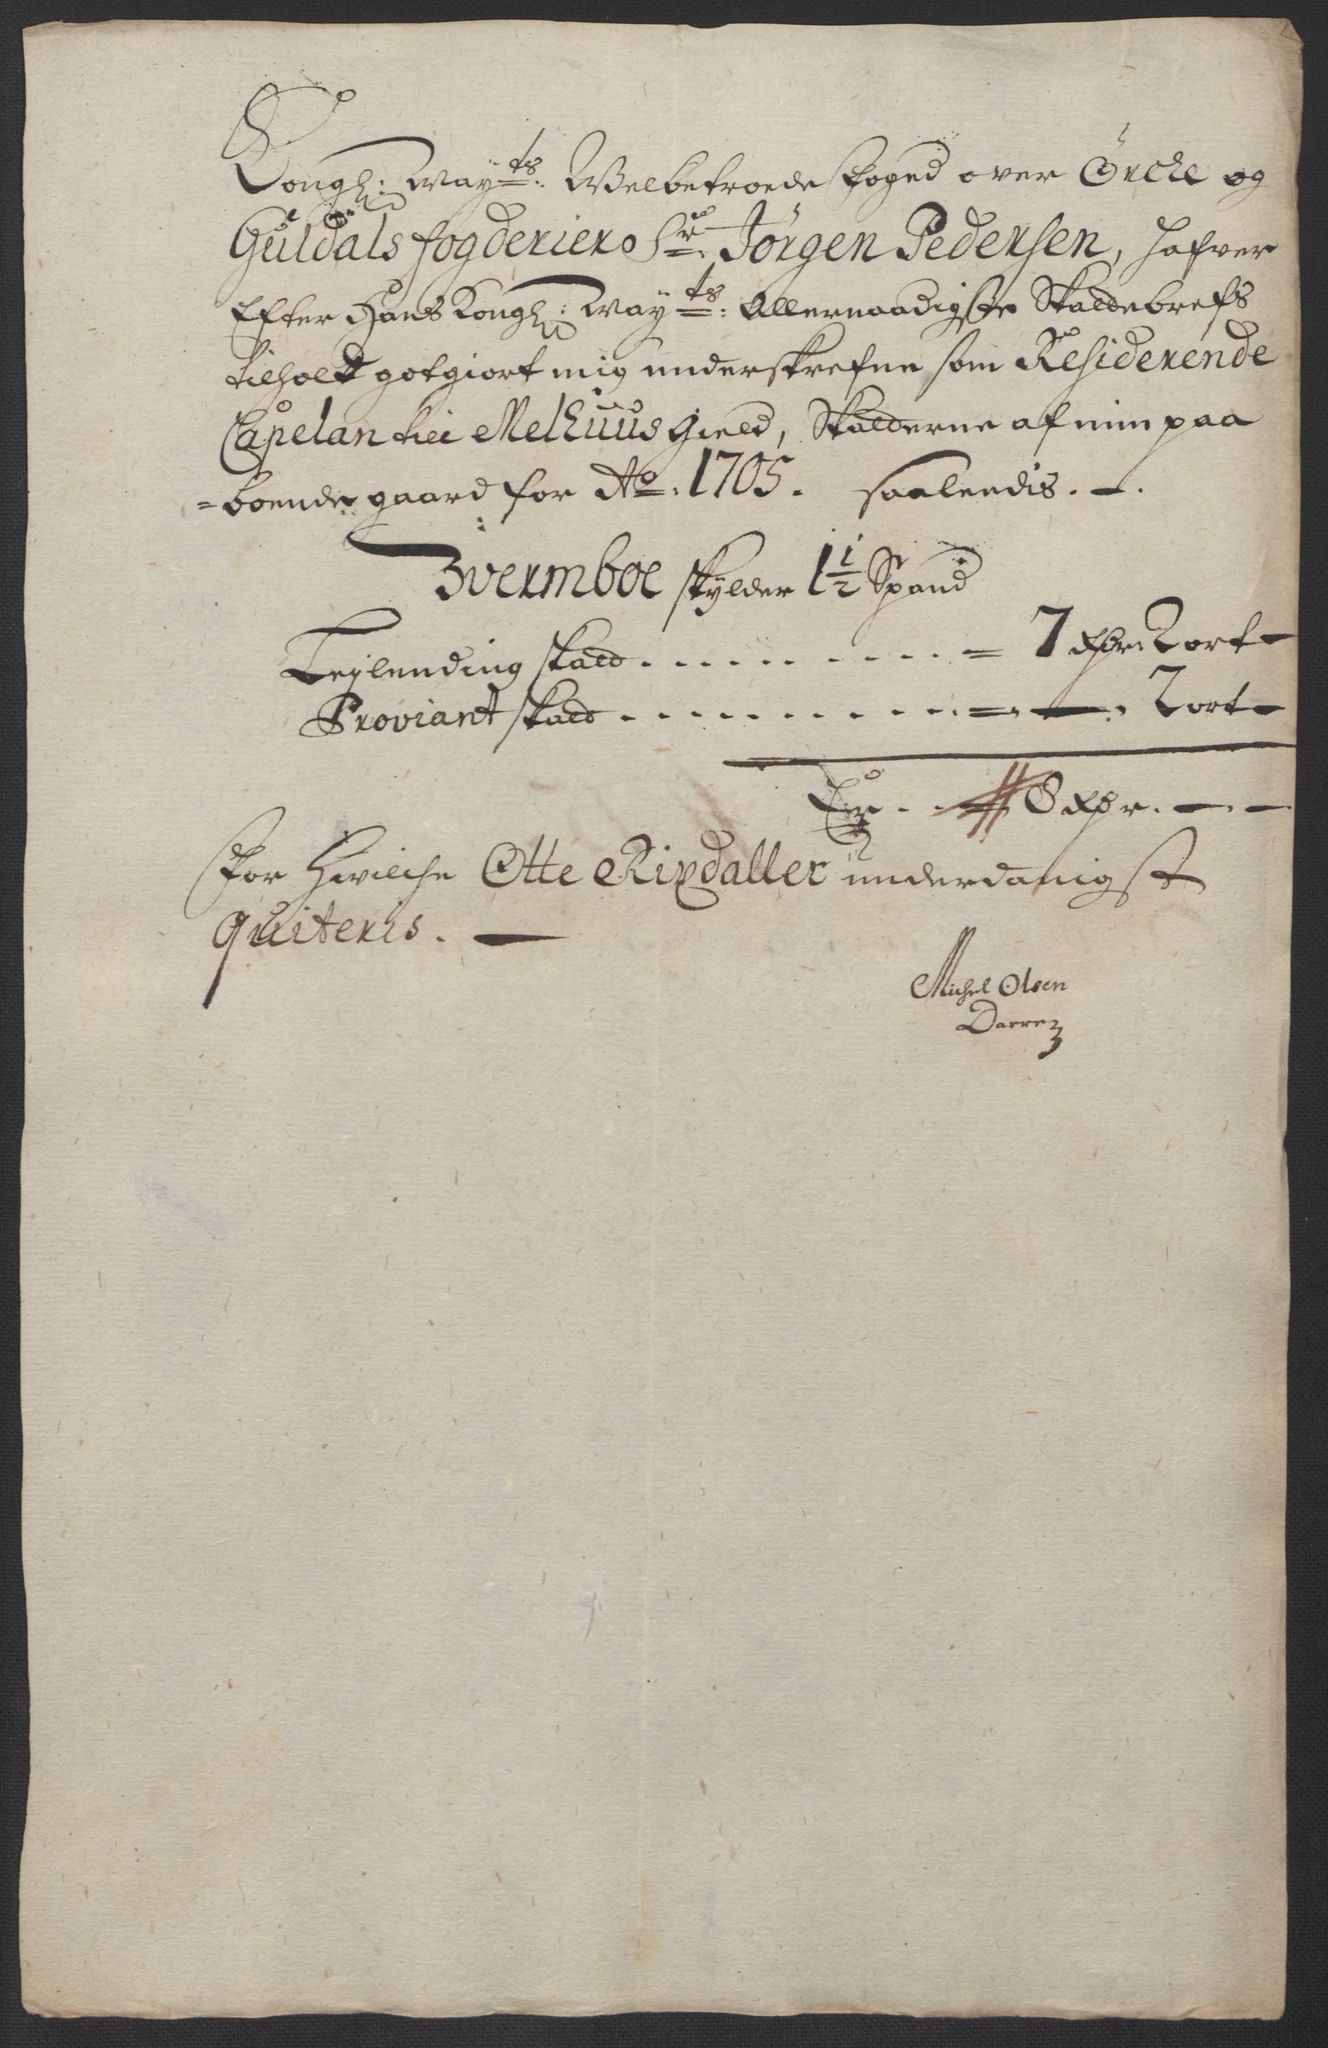 Kongl: May:ts: Welbetroede foged over Örcke og
Guldals fogderier Sr. Jörgen Pedersen, hafver
Efter Hans Kongl: May:ts: Allernaadigste Skattebrefs
tilhold gotgiort mig underskrefne som Residerende
Capelan till Melhuus gield, Skatterne af min paa
=boende gaard for Ao. 1705. saaledis. —.
Evermboe skylder 1 1/2 Spand
Leylending skatt . . . . . . . . . . = 7 Rdr. 2 ort —
Proviant skatt . . . . . . . . . . = — . 2 ort —
Er . . — 8 Rdr. — . —
For hvilche Otte Rixdaller underdanigst
quiteris. —
Michel Olsen
Darre